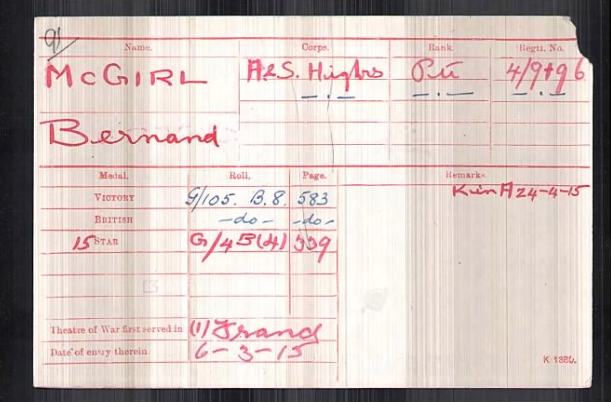 91
Name. Corps. Rank. Regtl. No.
McGIRL A&S. Highrs Pte
Bernand
Medal. Roll. Page. Remarks
VICTORY G/105. B.8. 583 Kin A 24-4-15
BRITISH -do- -do-
15 STAR G/4B(4) 339
Theatre of War first served in (1) France
Date of entry therein 6-3-15
K 1380.